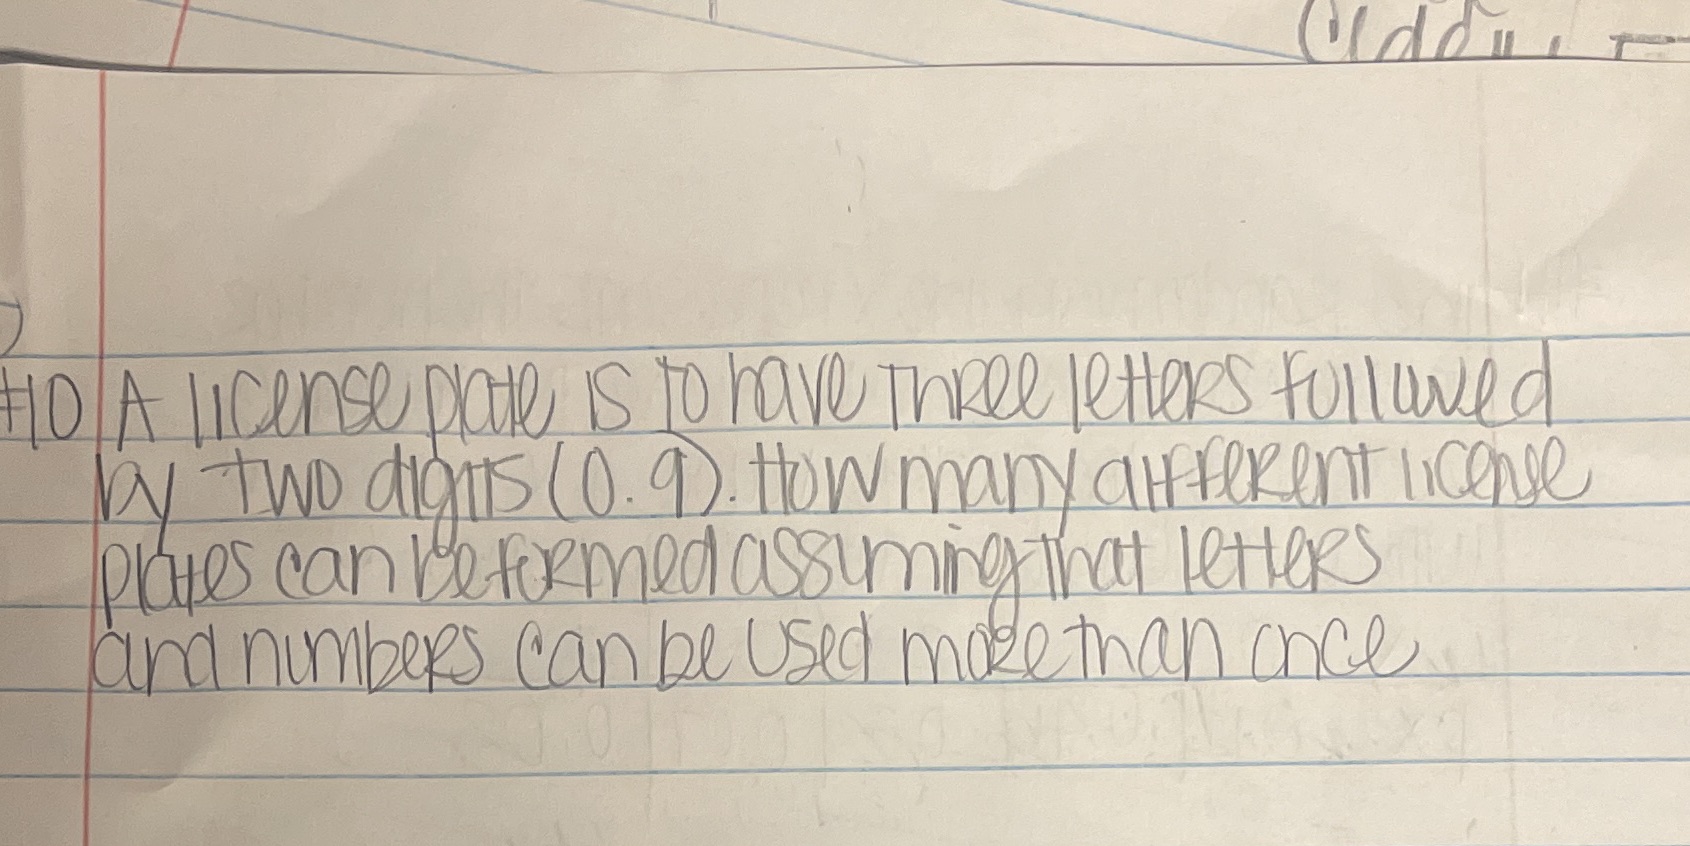 #10 A license plate is to have three letters followed
by two digits (0.9). How many different license
plates can be formed assuming that letters
and numbers can be used more than once